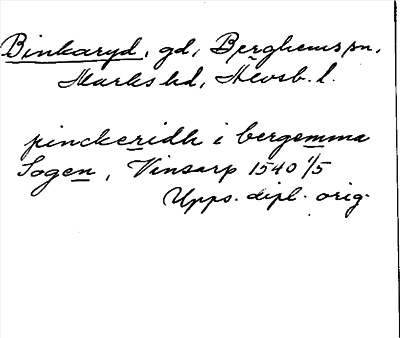 Binkaryd, gd, Berghems sn,
Marks hd, Älvsb. l.
pinckeridh i bergemma
Sogen, Vinsarp 1540 1/5
Upps. dipl. orig.